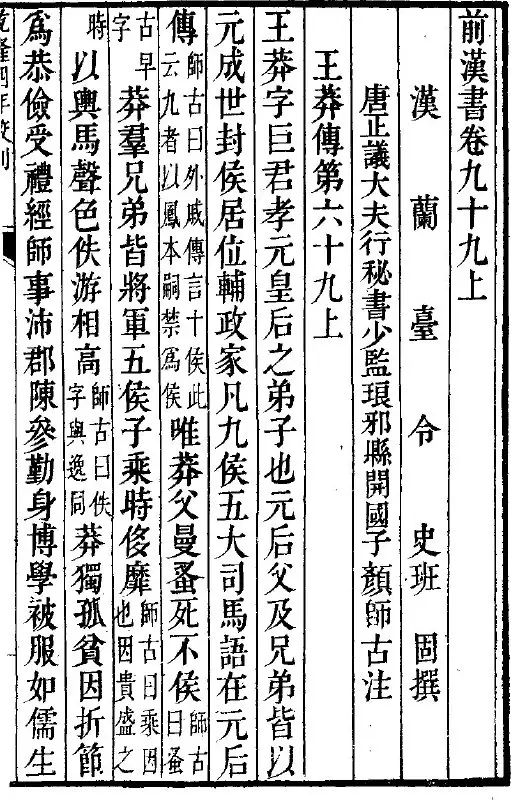 前漢書卷九十九上
漢蘭臺令史班固撰
唐正議大夫行秘書少監琅邪縣開國子顏師古注
王莽傳第六十九上
王莽字巨君孝元皇后之弟子也元后父及兄弟皆以
元成世封侯居位輔政家凡九侯五大司馬語在元后
傳師古曰外戚傳言十侯此云九者以鳳本嗣禁爲侯唯莽父曼蚤死不侯師古曰蚤
古早字莽羣兄弟皆將軍五侯子乘時侈靡師古曰乘因也因貴盛之
時以輿馬聲色佚游相高師古曰佚字與逸同莽獨孤貧因折節
爲恭儉受禮經師事沛郡陳參勤身博學被服如儒生